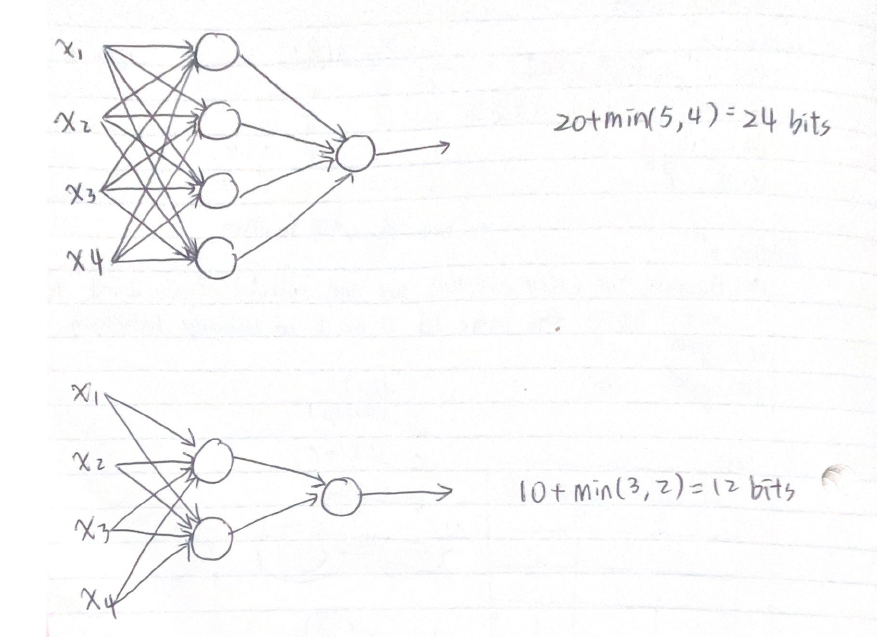 x1
x2
x3
x4
20+min(5,4)=24 bits
x1
x2
x3
x4
10+min(3,2)=12 bits